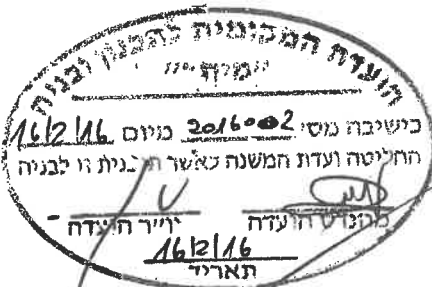 הועדה המקומית לתכנון ובניה
בישיבה מס׳ 2016002 מיום 16/2/16
החליטה ועדת המשנה לאשר תכנית זו לבניה
מהנדס הועדה יו״ר הועדה
16/2/16
תאריך